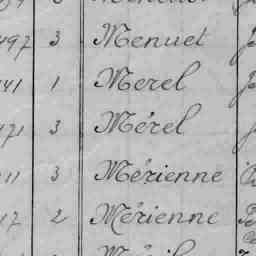 497 3 Menuet
141 1 Merel
171 3 Mérel
11 3 Mérienne
17 2 Mérienne